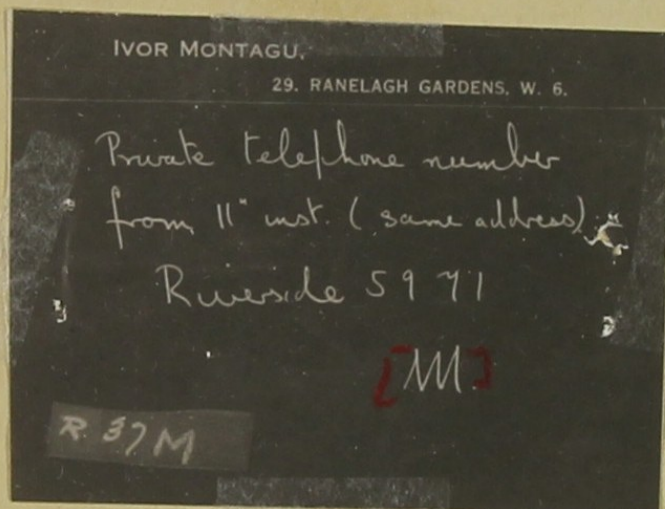 IVOR MONTAGU,
29. RANELAGH GARDENS, W. 6.
Private telephone number
from 11" inst. (same address)
Riverside 5971
[M]
R. 37M